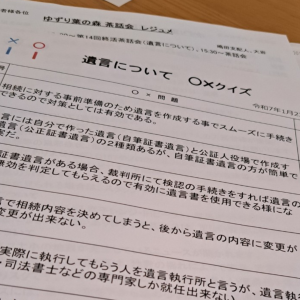 者様各位
ゆずり葉の森 茶話会 レジュメ
第14回終活茶話会(遺言について) 15:30~茶話会
遺言について ○×クイズ
○×問題
令和7年1月2
相続に対する事前準備のため遺言を作成する事でスムーズに手続き
できるので対策としては有効である。
遺言には自分で作った遺言(自筆証書遺言)と公証人役場で作成す
遺言(公正証書遺言)の2種類あるが、自筆証書遺言の方が簡単で
証書遺言がある場合、裁判所にて検認の手続きをすれば遺言の
無効を判定してもらえるので有効に遺言書を使用できる様にな
で相続内容を決めてしまうと、後から遺言の内容に変更が
変更が出来ない。
実際に執行してもらう人を遺言執行所と言うが、遺言執
・司法書士などの専門家しか就任出来ない。